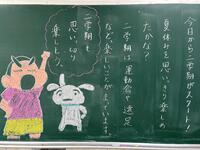 今日から二学期がスタート!
夏休みを思いきり楽しめ
たかな?
二学期は運動会や遠足
など楽しいことがまっています。
二学期も
思い切り
楽しもう。